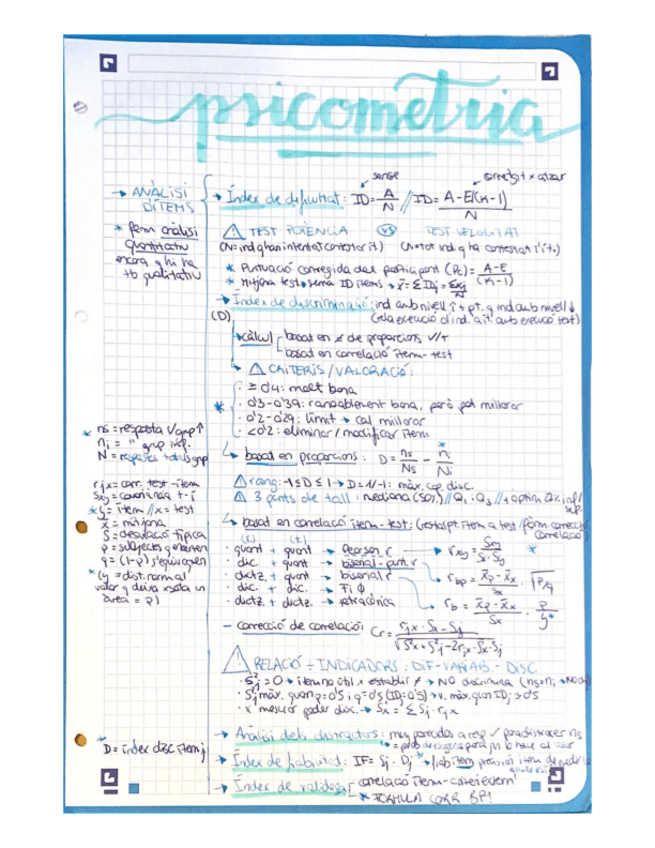 psicometria
→ ANÀLISI D'ÍTEMS
* fem anàlisi
quantitativ
encara q hi ha
tb qualitatiu
sense
→ Índex de dificultat: ID = A/N // ID = A - E/(K-1) / N
⚠ TEST POTÈNCIA VS TEST VELOCITAT
(N = ind q han intentat contestar ít) (N = tot ind q ha contestat l'ít.)
* Puntuació corregida del participant (Pc) = A-E/(K-1)
* Mitjana test = suma ID ítems → x̄ = Σ IDj = Σxi/N
→ Índex de discriminació: ind amb nivell ↑ + pt. q ind amb nivell ↓
(D) (rela execució d'ind. a ít. amb execució test)
→ càlcul
basat en ≠ de proporcions
basat en correlació ítem-test
→ ⚠ CRITERIS/VALORACIÓ:
*
· ≥ 0'4: molt bona
· 0'3-0'39: raonablement bona, però pot millorar
· 0'2-0'29: límit → cal millorar
· <0'2: eliminar/modificar ítem
* ns = resposta √ grup ↑
ni = " grup inf.
N = respostes totals grup
↳ basat en proporcions: D = ns/Ns - ni/Ni
⚠ rang: -1 ≤ D ≤ 1 → D = 1/-1: màx. cap. disc.
⚠ 3 punts de tall: mediana (50%) // Q1 i Q3 // + òptim 27% inf/sup.
rjx = corr. test-ítem
Sxy = covariància t-i
* y = ítem // x = test
x̄ = mitjana
S = desviació típica
p = subjectes q encerten
q = (1-p) s'equivoquen
* (y = dist. normal
valor q deixa x sota un
àrea = p)
↳ basat en correlació ítem-test: (resta pt. ítem a test / fórm correcció correlació)
(í.) (t.)
· quant + quant → Pearson r → rxy = Sxy / Sx·Sy *
· dic. + quant → biserial-punt. r → rbp = x̄p - x̄x / Sx · √p/q
· dictz. + quant → biserial r → rb = x̄p - x̄x / Sx · p/y *
· dic. + dic. → Fi Φ
· dictz. + dictz. → tetracòrica
- correcció de correlació: Cr = rjx · Sx - Sj / √S²x + S²j - 2rjx·Sx·Sj
⚠ RELACIÓ ÷ INDICADORS: DIF-VARIAB.-DISC.
· S²j = 0 → ítem no útil x establir ≠ → NO discrimina (ns = ni →
· S²j màx. quan p = 0'5 i q = 0'5 (ID = 0'5) → v. màx. quan IDj = 0'5
· x mesurar poder disc. → Sx = Σ Sj · rjx
→ Anàlisi dels distractors:
* D = índex disc ítem j
→ Índex de fiabilitat: IF = Sj · Dj
→ Índex de validesa
correlació ítem-
* FORMULA CORR BP!